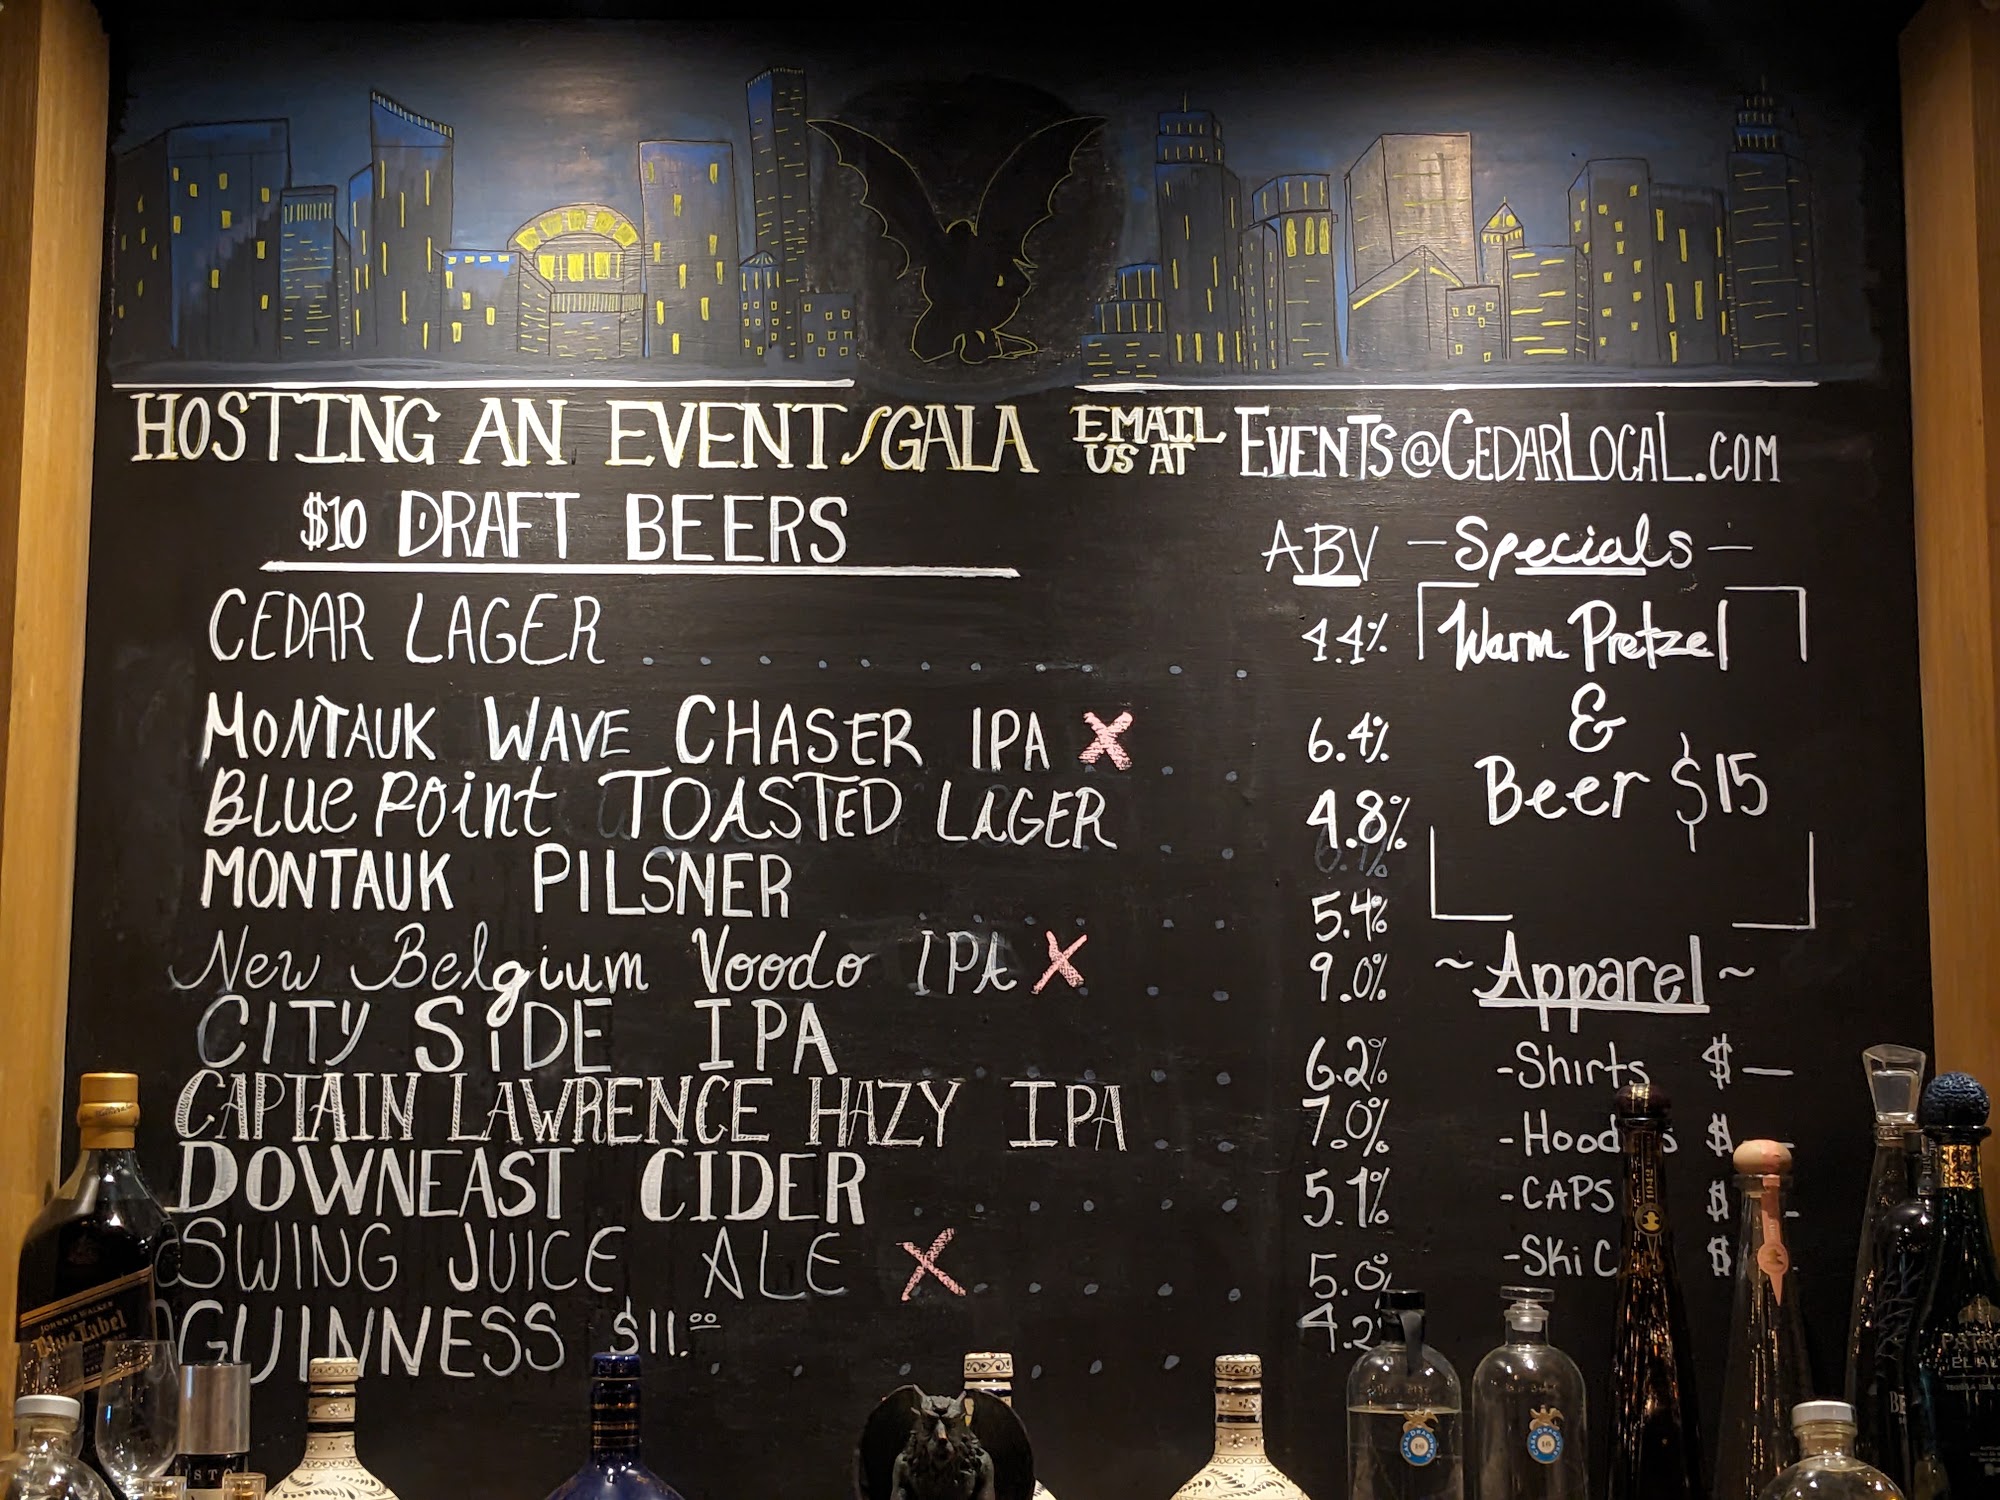 HOSTING AN EVENT/GALA EMAIL US AT EVENTS@CEDARLOCAL.COM
$10 DRAFT BEERS
ABV
CEDAR LAGER 4.4%
MONTAUK WAVE CHASER IPA X 6.4%
BLUE POINT TOASTED LAGER 4.8%
MONTAUK PILSNER 5.4%
New Belgium Voodo IPA X 9.0%
CITY SIDE IPA 6.2%
CAPTAIN LAWRENCE HAZY IPA 7.0%
DOWNEAST CIDER 5.1%
SWING JUICE ALE X 5.0%
GUINNESS $11.00 4.2
- Specials -
Warm Pretzel
&
Beer $15
~ Apparel ~
- Shirts $ —
- $
- CAPS $
- Ski $
JOHNNIE WALKER
Blue Label
1942
PATRÓN